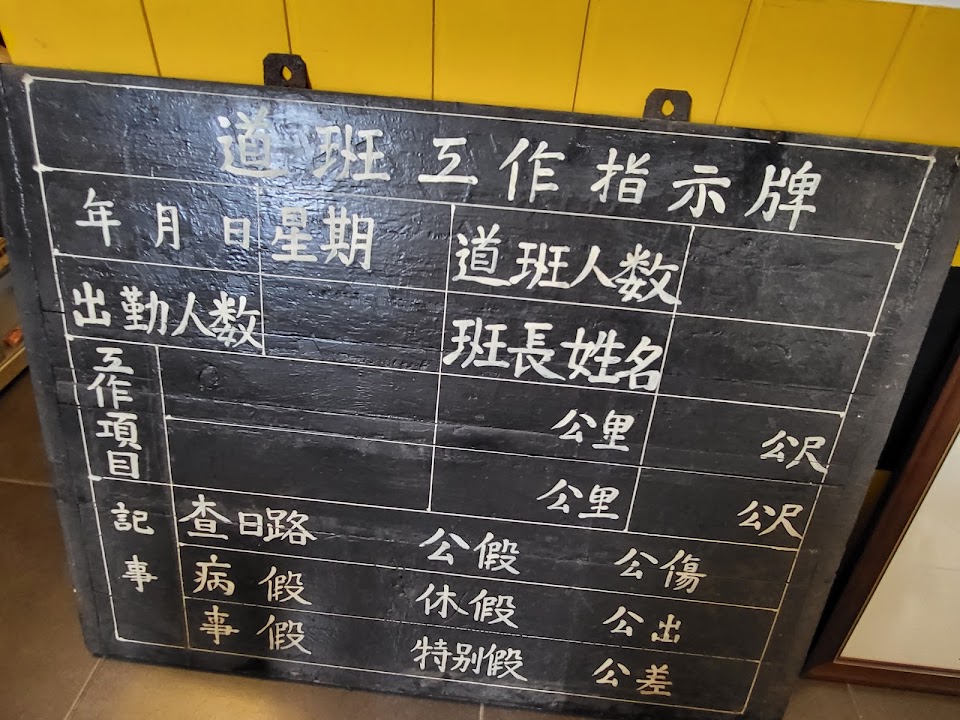 道班工作指示牌
年 月 日 星期 道班人数
出勤人数 班長姓名
工作項目 公里 公尺
公里 公尺
記事 查日路 公假 公傷
病假 休假 公出
事假 特别假 公差